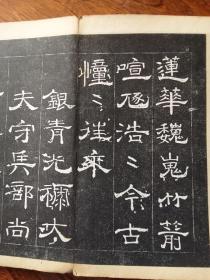 蓮華巍嵬竹箭
喧豗浩〻今古
憧〻往來
銀青光祿大
夫守兵部尚